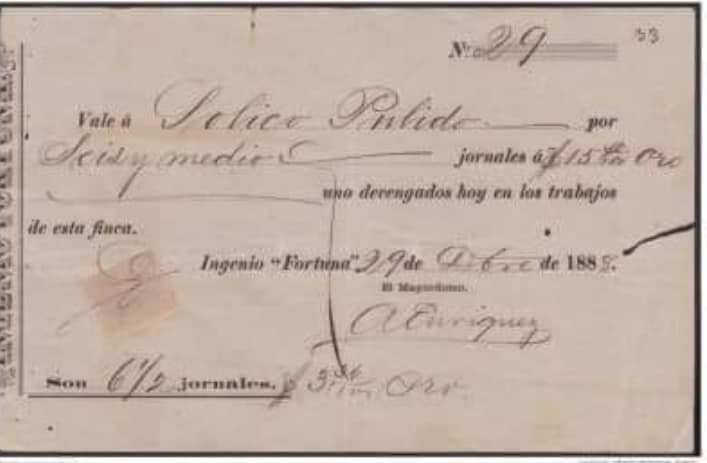 33
Nº 29
Vale á Solico Pulido por
Seis y medio jornales á $15 Oro
uno devengados hoy en los trabajos
de esta finca.
Ingenio "Fortuna" 29 de Dbre de 188
El Mayordomo.
A Enriquez
Son 6 1/2 jornales. $ 3 Oro.